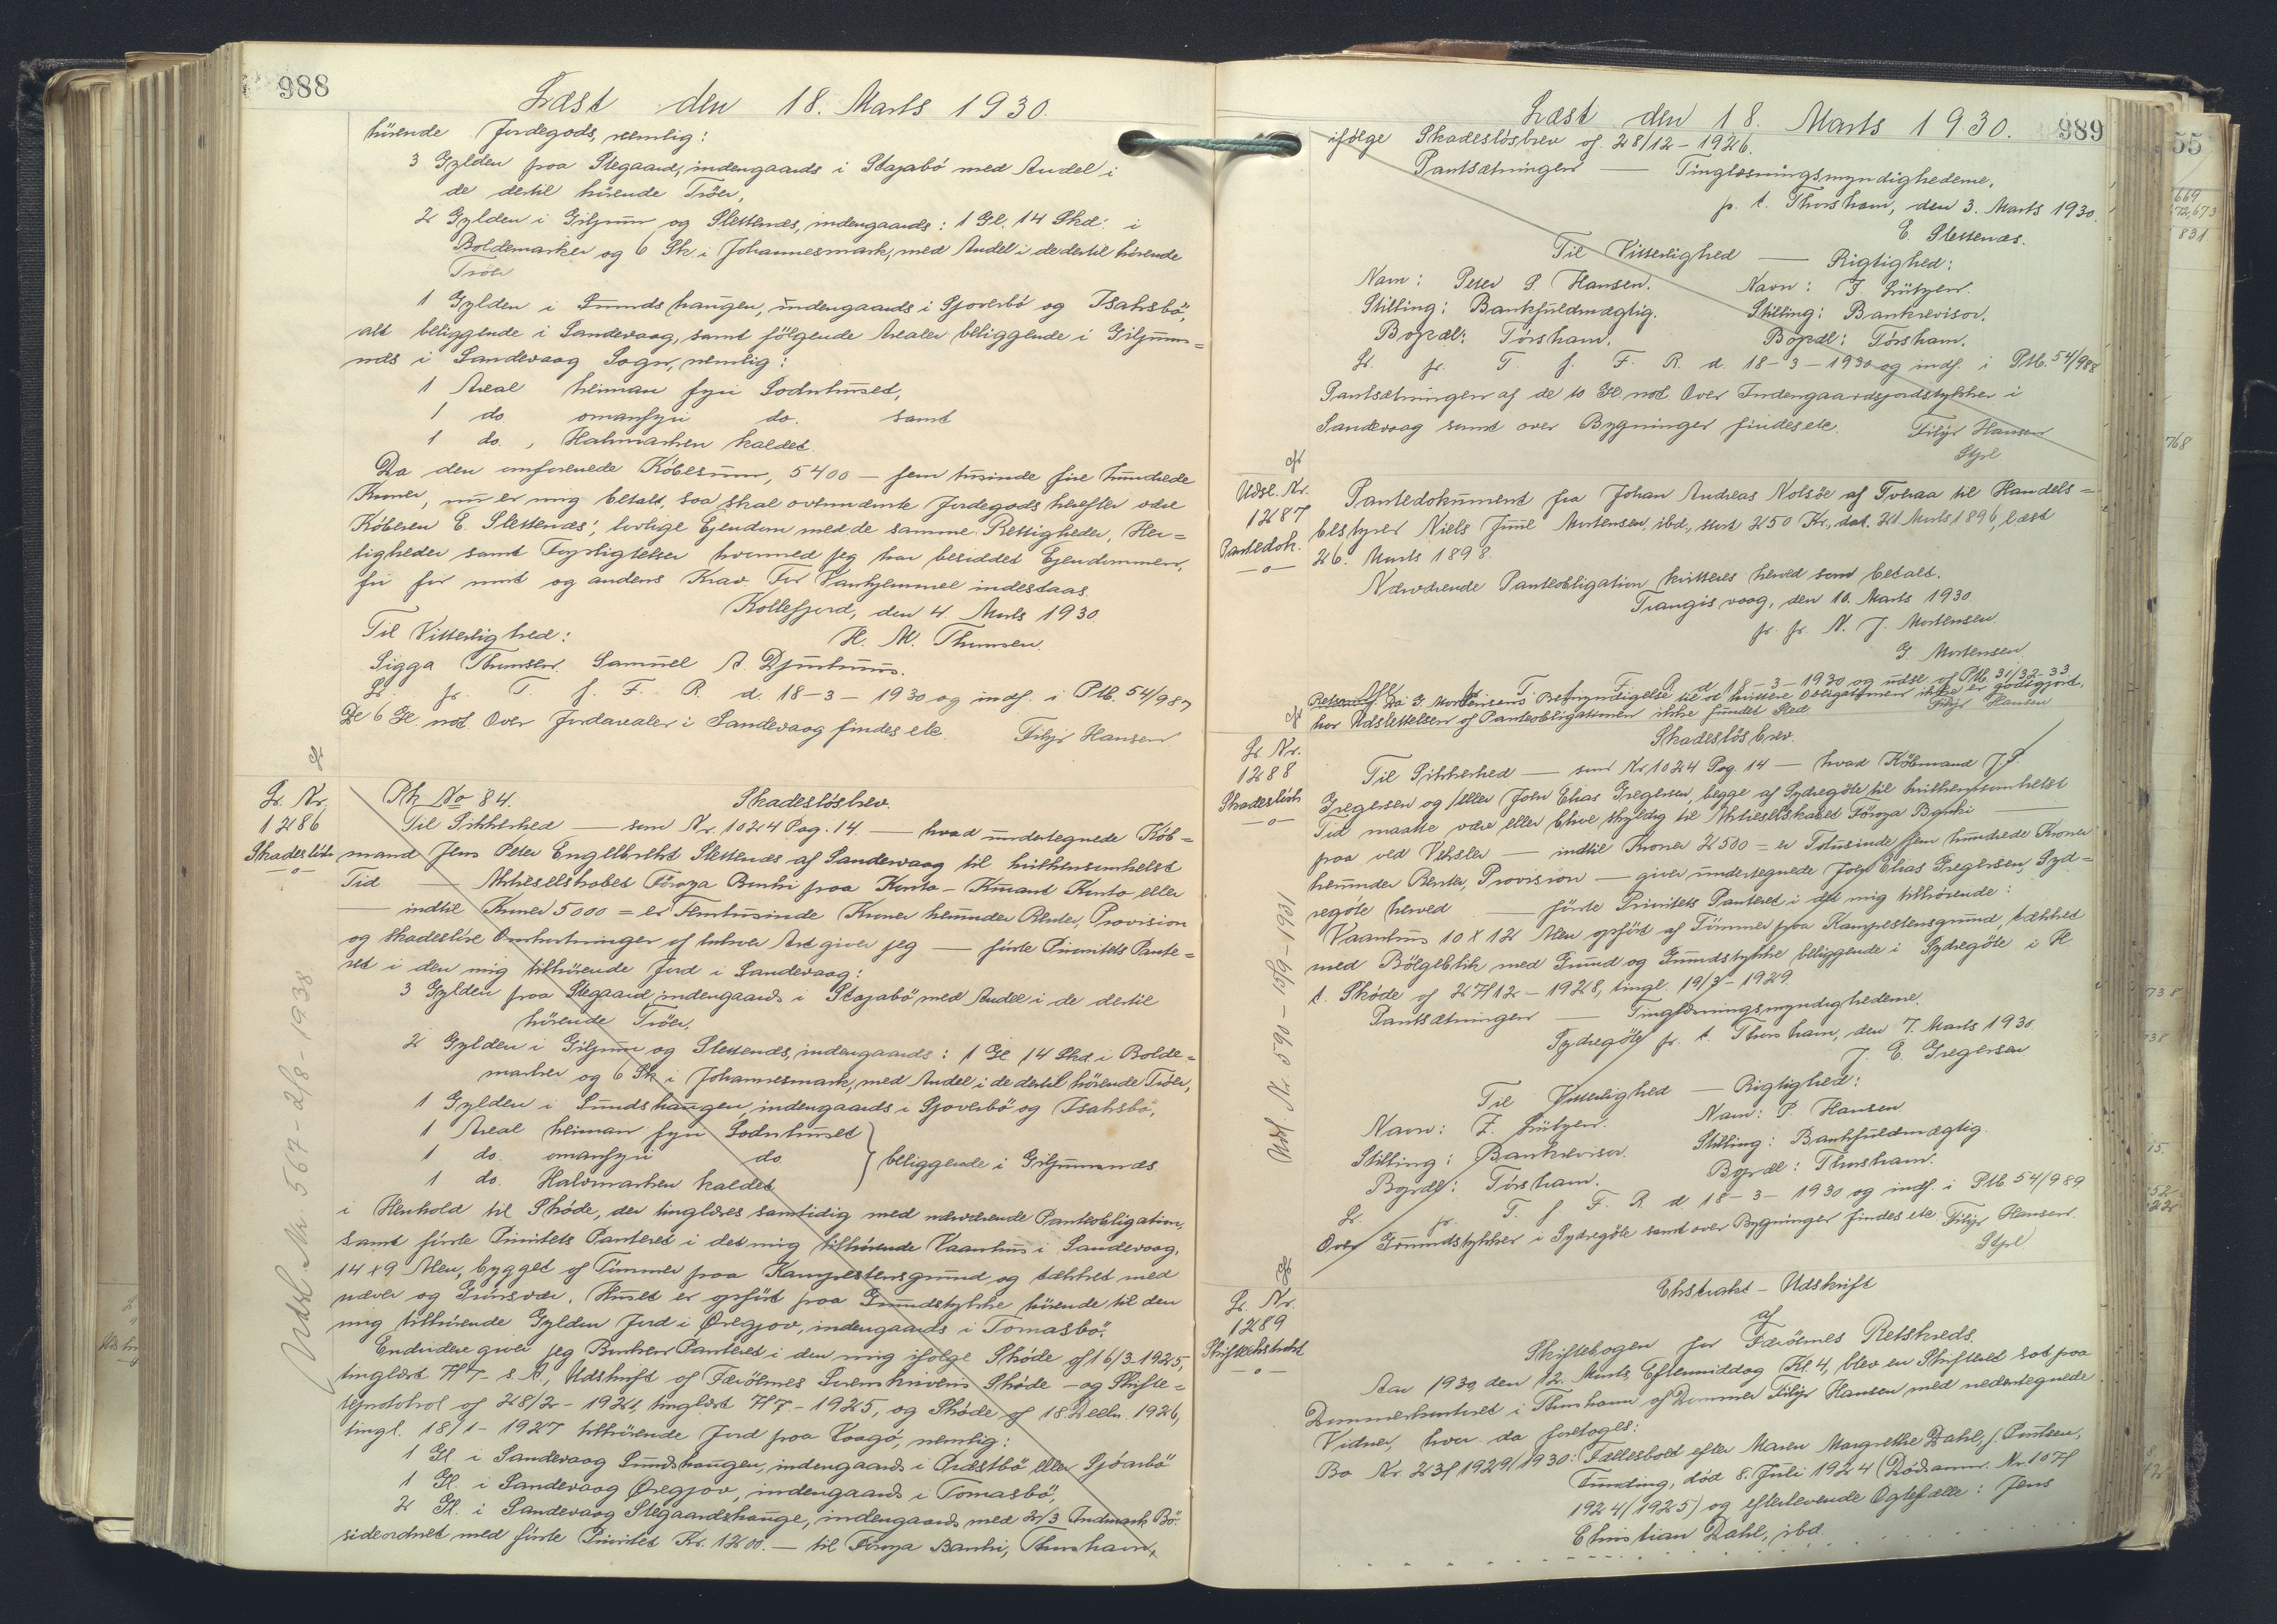 988
Læst den 18. Marts 1930.
hørende Jordegods, nemlig:
3 Gylden paa Stegaard, indengaards i Stajabö med Andel i
de dertil hörende Tröer,
2 Gylden i Giljum og Slettenæs, indengaards: 1 Gl. 14 Skd. i
Boldemarker og 6 Sk. i Johannesmark, med Andel i de dertil hörende
Tröer
1 Gylden i Sundshaugen, indengaards i Gjoverbö og Isaksbö,
alt beliggende i Sandevaag, samt fölgende Arealer beliggende i Giljum=
næs i Sandevaag Sogn, nemlig:
1 Areal heiman fyri Sodnhuset,
1 do omanfyri do. samt
1 do., Halvmarken kaldet.
Da den omforenede Köbesum, 5400 — fem tusinde fire hundrede
Kroner, nu er mig betalt, saa skal ovennævnte Jordegods herefter være
Köberen E. Slettenæs', lovlige Ejendom med de samme Rettigheder, Her=
ligheder samt Forpligtelser hvormed jeg har besiddet Ejendommen,
fri for mit og andens Krav. For Vanhjemmel indestaas.
Kollefjord, den 4. Marts 1930.
Til Vitterlighed: H. M. Thomsen.
Sigga Thomsen. Samuel A. Djurhuus.
Lr. fr. T. f. F. R. d. 18-3-1930 og indf. i Ptb. 54/987
De 6 Gl. not. Over Jordarealer i Sandevaag findes ete. Filip Hansen
Lr. Nr.
1286
Skadeslösb
—o—
Ptk No 84. Skadeslösbrev.
Til Sikkerhed — som Nr. 1024 Pag. 14. — hvad undertegnede Köb=
mand Jens Peter Engelbreht Slettenæs af Sandevaag til hvilkensomhelst
Tid — Aktieselskabet Föroya Banki paa Konto-Kurant Konto eller
— indtil Kroner 5000 = er Femtusinde Kroner herunder Renter, Provision
og skadeslöse Omkostninger af enhver Art giver jeg — förste Prioritets Pante=
ret i den mig tilhörende Jord i Sandevaag:
3 Gylden paa Stegaard, indengaards i Stajabö med Andel i de dertil
hörende Tröer,
2 Gylden i Giljum og Slettenæs, indengaards: 1 Gl. 14 Skd. i Bolde=
marker og 6 Sk. i Johannesmark, med Andel i de dertil hörende Tröer,
1 Gylden i Sundshaugen, indengaards i Gjoverbö og Isaksbö,
1 Areal heiman fyri Sodnhuset
1 do. omanfyri do } beliggende i Giljumnæs
1 do. Halvmarken kaldet
i Henhold til Sköde, der tinglæses samtidig med nærværende Panteobligation,
samt förste Prioritets Panteret i det mig tilhörende Vaanhus i Sandevaag,
14 x 9 Alen, bygget af Tömmer paa Kampestensgrund og tækket med
næver og Grönsvær. Huset er opfört paa Grundstykke hörende til den
mig tilhörende Gylden Jord i Öregjov, indengaards i Tomasbö.
Endvidere giver jeg Banken Panteret i den mig ifölge Sköde af 16/3 1925,
tinglæst 7/7 s. A., Udskrift af Færöernes Sorenskriveris Sköde- og Skifte=
tefprotokol af 28/2-1924, tinglæst 7/7-1925, og Sköde af 18. Decbr. 1926,
tingl. 18/1-1927 tilhörende Jord paa Vaagö, nemlig:
1 Gl. i Sandevaag Sundshaugen, indengaards i Præstbö eller Gjöarbö
1 Gl. i Sandevaag Öregjov, indengaards i Tomasbö,
2 Gl. i Sandevaag Stegaardshauge, indengaards med 2/3 Indmark Bö.
sideordnet med förste Prioritet Kr. 1200. — til Föroya Banki, Thorshavn,
Udsl. Nr. 567 - 2/8 - 1938
989
Læst den 18. Marts 1930.
ifölge Skadeslösbrev af 28/12-1926.
Pantsætningen — Tinglæsningsmyndighederne,
p. t. Thorshavn, den 3. Marts 1930.
E. Slettenæs.
Til Vitterlighed — Rigtighed:
Navn: Peter P. Hansen. Navn: J. Lützen.
Stilling: Bankfuldmægtig. Stilling: Bankrevisor.
Bopæl: Tórshavn. Bopæl: Tórshavn.
Lr. fr. T. f. F. R. d. 18-3-1930 og indf. i Ptb. 54/988
Pantsætningen af de 10 Gl. not. Over Indengaardsjordstykker i
Sandevaag samt over Bygninger findes ete. Filip Hansen
Udsl. Nr.
1287
Pantedok.
—o—
Pantedokument fra Johan Andreas Nolsöe af Tveraa til Handels=
bestyrer Niels Juul Mortensen, ibd., stort 250 Kr., dat. 21 Marts 1896, læst
26. Marts 1898.
Nærværende Panteobligation kvitteres herved som betalt.
Trangisvaag, den 10. Marts 1930.
pr. pr. N. J. Mortensen.
G. Mortensen.
T. f. F. R. d. 18-3-1930 og udsl. af Ptb. 31/32-33
Da G. Mortensens Bemyndigelse til at kvittere Obligationen ikke er godtgjort,
har Udslettelsen af Panteobligationen ikke fundet Sted. Filip Hansen
Lr. Nr.
1288
Skadeslösb
—o—
Skadeslös brev.
Til Sikkerhed — som Nr. 1024 Pag. 14 — hvad Köbmand J. P.
Gregersen og/eller John Elias Gregersen, begge af Sydregöte til hvilkensomhelst
Tid maatte være eller blive skyldig til Aktieselskabet Föroya Banki —
paa ved Veksler — indtil Kroner 2500 = er Totusinde fem hundrede Kroner
herunder Renter, Provision — giver undertegnede John Elias Gregersen, Syd=
regöte herved — förste Prioritets Panteret i det mig tilhörende:
Vaanhus 10 x 12 Alen opfört af Tömmer paa Kampestensgrund, tækket
med Bölgeblik med Grund og Grundstykke beliggende i Sydregöte i H.
t. Sköde af 27/12-1928, tingl. 19/3-1929.
Pantsætningen — Tinglæsningsmyndighederne.
Sydregöte pr. t. Thorshavn, den 7. Marts 1930.
J. E. Gregersen
Til Vitterlighed — Rigtighed:
Navn: J. Lützen. Navn: P. Hansen
Stilling: Bankrevisor. Stilling: Bankfuldmægtig.
Bopæl: Tórshavn. Bopæl: Thorshavn.
Lr. fr. T. f. F. R. d. 18-3-1930 og indf. i Ptb. 54/989
Over Grundstykker i Sydregöte samt over Bygninger findes ete. Filip Hansen.
Udsl. Nr. 590 - 15/9-1931
Lr. Nr.
1289
Skifteekstrakt
—o—
Ekstrakt-Udskrift
af
Skiftebogen for Færöernes Retskreds.
Aar 1930, den 12. Marts, Eftermiddag Kl. 4, blev en Skifteret sat paa
Dommerkontoret i Thorshavn af Dommer Filip Hansen med nedertegnede
Vidner, hvor da foretoges:
Bo Nr. 23/1929/1930: Fællesboet efter Maren Margrethe Dahl, f. Poulsen,
Funding, död 8. Juli 1924 (Dödsanm. Nr. 107/
1924/1925) og efterlevende Ægtefælle: Jens
Christian Dahl, ibd.
55
669
672,673
831
768
738